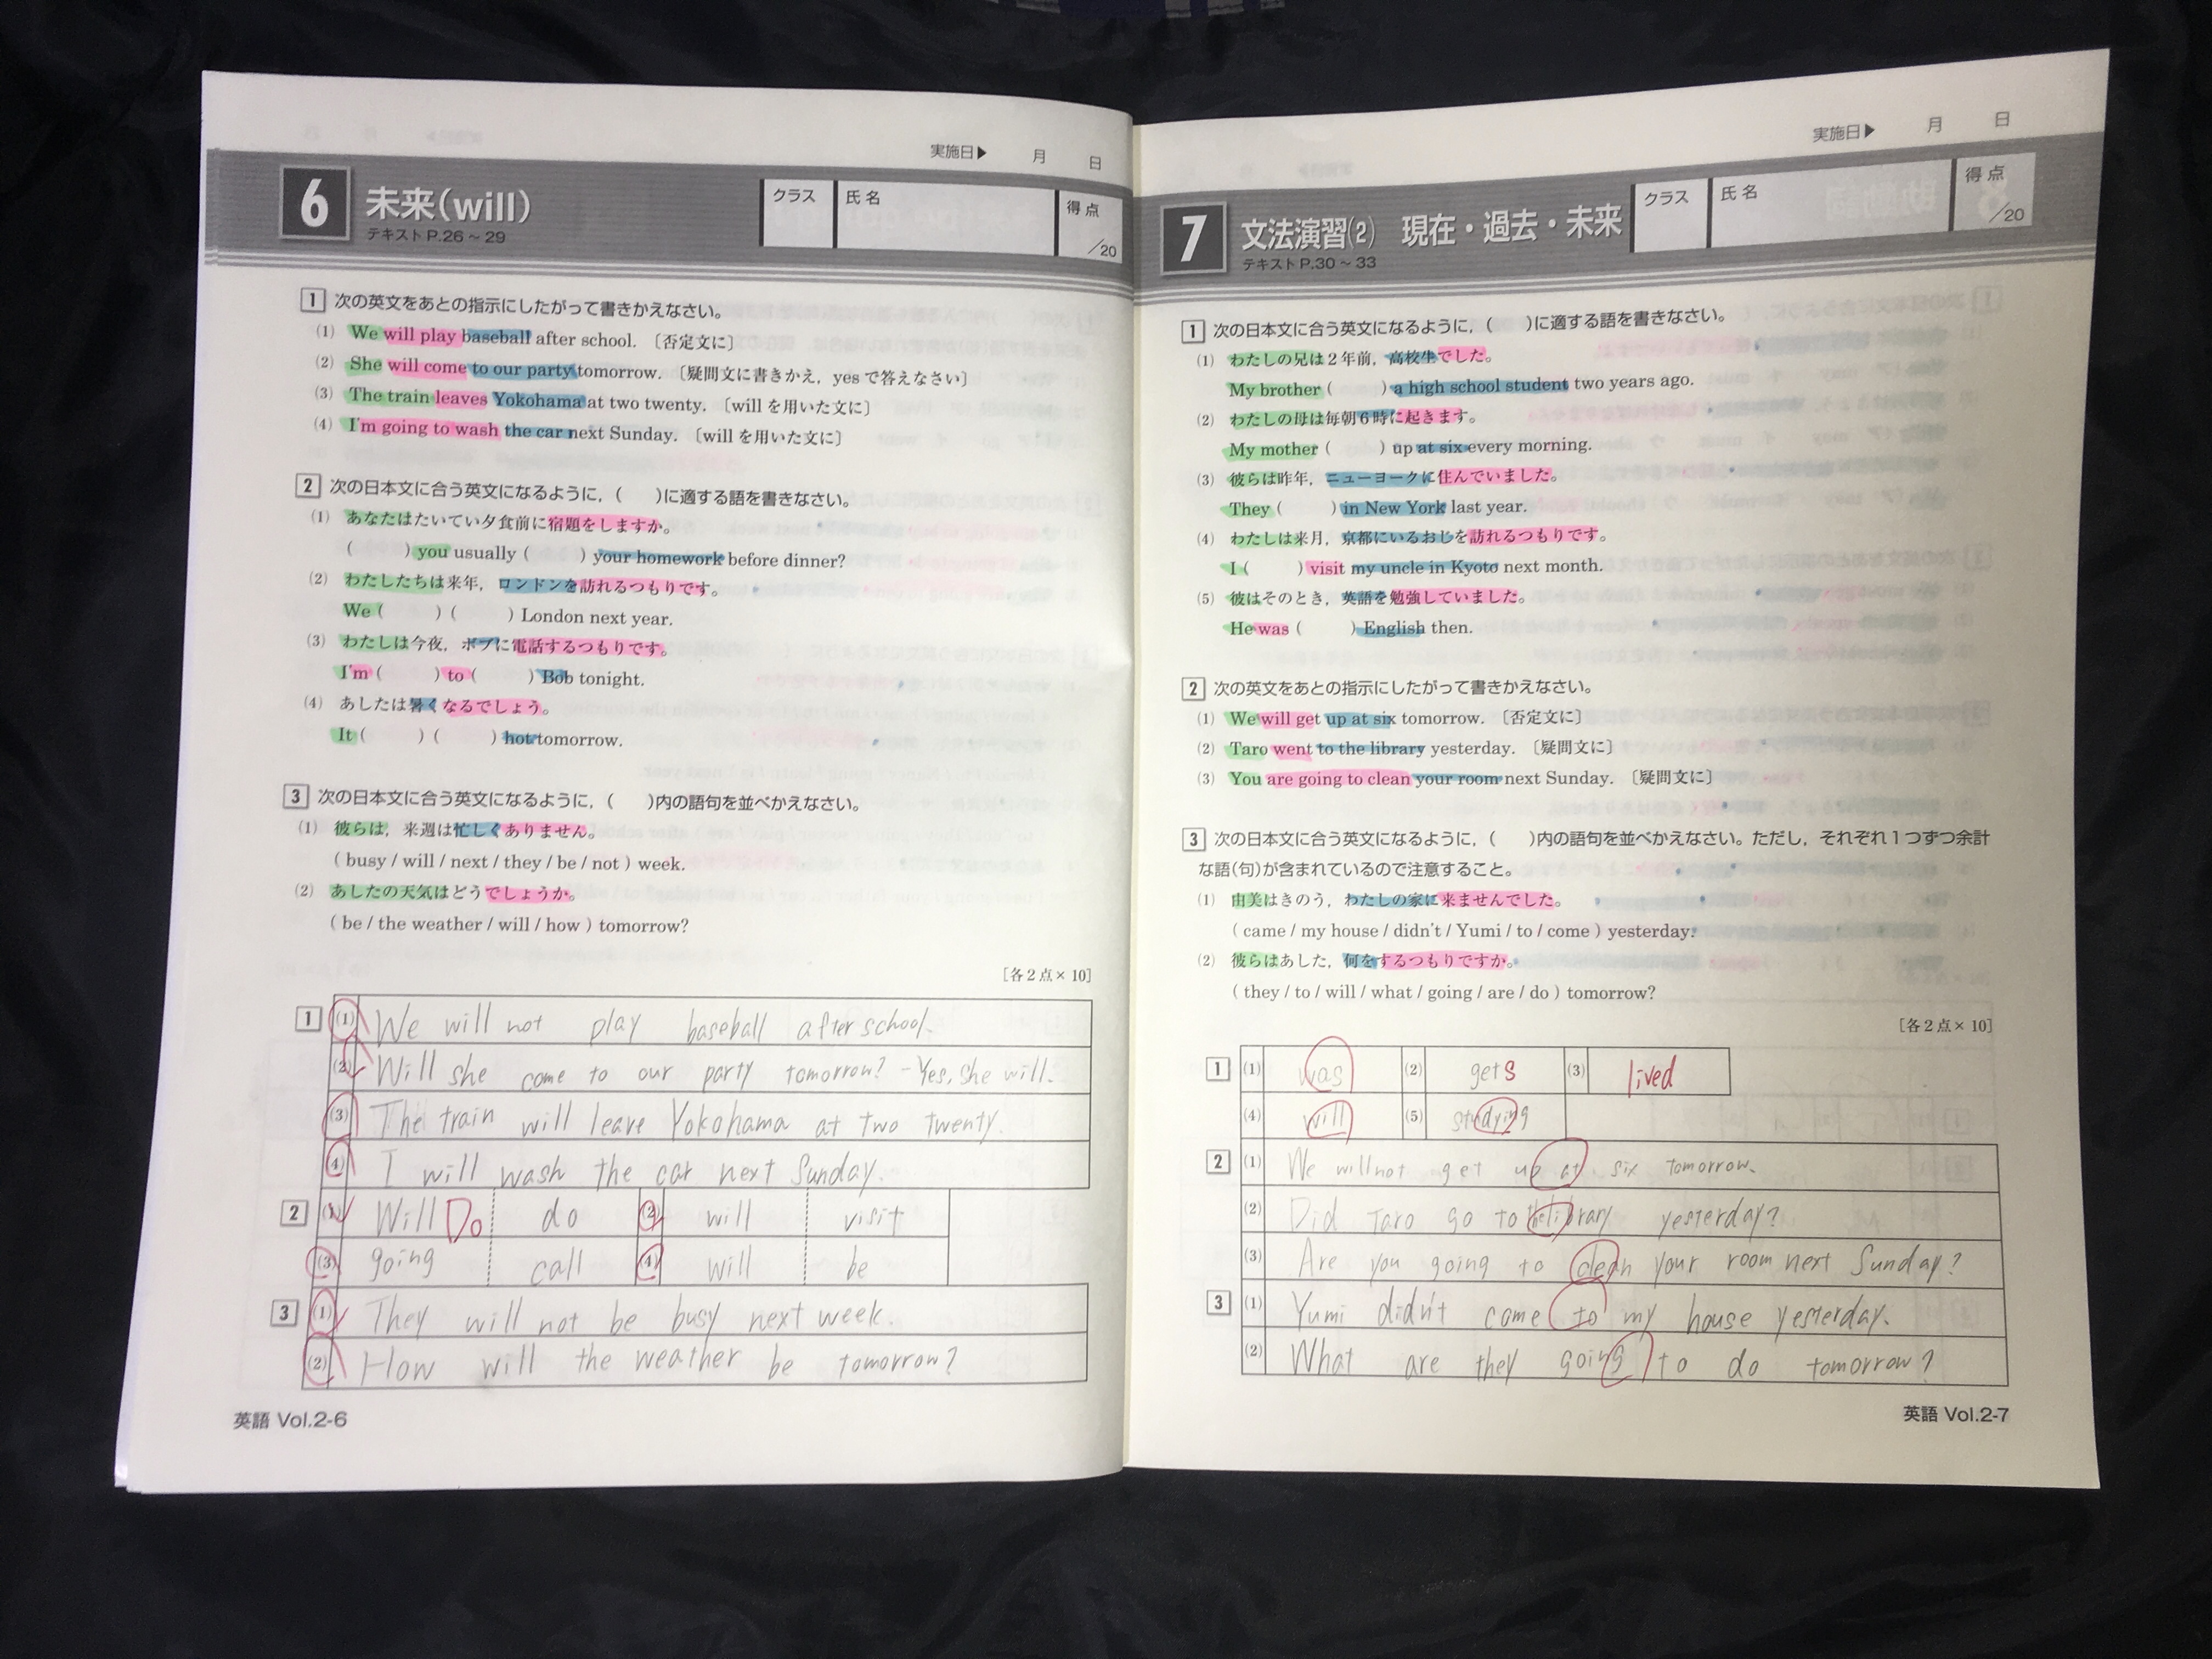 実施日▶ 月 日
6 未来(will)
テキスト P.26～29
クラス 氏名 得点 /20
1 次の英文をあとの指示にしたがって書きかえなさい。
(1) We will play baseball after school. 〔否定文に〕
(2) She will come to our party tomorrow. 〔疑問文に書きかえ，yesで答えなさい〕
(3) The train leaves Yokohama at two twenty. 〔willを用いた文に〕
(4) I'm going to wash the car next Sunday. 〔willを用いた文に〕
2 次の日本文に合う英文になるように，( )に適する語を書きなさい。
(1) あなたはたいてい夕食前に宿題をしますか。
( ) you usually ( ) your homework before dinner?
(2) わたしたちは来年，ロンドンを訪れるつもりです。
We ( ) ( ) London next year.
(3) わたしは今夜，ボブに電話するつもりです。
I'm ( ) to ( ) Bob tonight.
(4) あしたは暑くなるでしょう。
It ( ) ( ) hot tomorrow.
3 次の日本文に合う英文になるように，( )内の語句を並べかえなさい。
(1) 彼らは，来週は忙しくありません。
( busy / will / next / they / be / not ) week.
(2) あしたの天気はどうでしょうか。
( be / the weather / will / how ) tomorrow?
［各2点×10］
1 (1) We will not play baseball after school.
(2) Will she come to our party tomorrow? - Yes, she will.
(3) The train will leave Yokohama at two twenty.
(4) I will wash the car next Sunday.
2 (1) Will Do do (2) will visit
(3) going call (4) will be
3 (1) They will not be busy next week.
(2) How will the weather be tomorrow?
英語 Vol.2-6
実施日▶ 月 日
7 文法演習(2) 現在・過去・未来
テキスト P.30～33
クラス 氏名 得点 /20
1 次の日本文に合う英文になるように，( )に適する語を書きなさい。
(1) わたしの兄は2年前，高校生でした。
My brother ( ) a high school student two years ago.
(2) わたしの母は毎朝6時に起きます。
My mother ( ) up at six every morning.
(3) 彼らは昨年，ニューヨークに住んでいました。
They ( ) in New York last year.
(4) わたしは来月，京都にいるおじを訪れるつもりです。
I ( ) visit my uncle in Kyoto next month.
(5) 彼はそのとき，英語を勉強していました。
He was ( ) English then.
2 次の英文をあとの指示にしたがって書きかえなさい。
(1) We will get up at six tomorrow. 〔否定文に〕
(2) Taro went to the library yesterday. 〔疑問文に〕
(3) You are going to clean your room next Sunday. 〔疑問文に〕
3 次の日本文に合う英文になるように，( )内の語句を並べかえなさい。ただし，それぞれ1つずつ余計
な語(句)が含まれているので注意すること。
(1) 由美はきのう，わたしの家に来ませんでした。
( came / my house / didn't / Yumi / to / come ) yesterday.
(2) 彼らはあした，何をするつもりですか。
( they / to / will / what / going / are / do ) tomorrow?
［各2点×10］
1 (1) was (2) gets (3) lived
(4) will (5) studying
2 (1) We will not get up at six tomorrow.
(2) Did Taro go to the library yesterday?
(3) Are you going to clean your room next Sunday?
3 (1) Yumi didn't come to my house yesterday.
(2) What are they going to do tomorrow?
英語 Vol.2-7